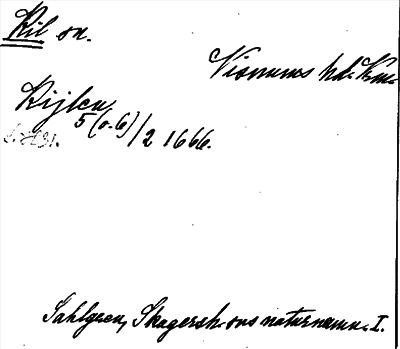 Kil sn.
Visnums hd. Krm.
Kijlen
5 (o. 6)/2 1666.
Sahlgren, Skagersh. ons naturnamn. I.